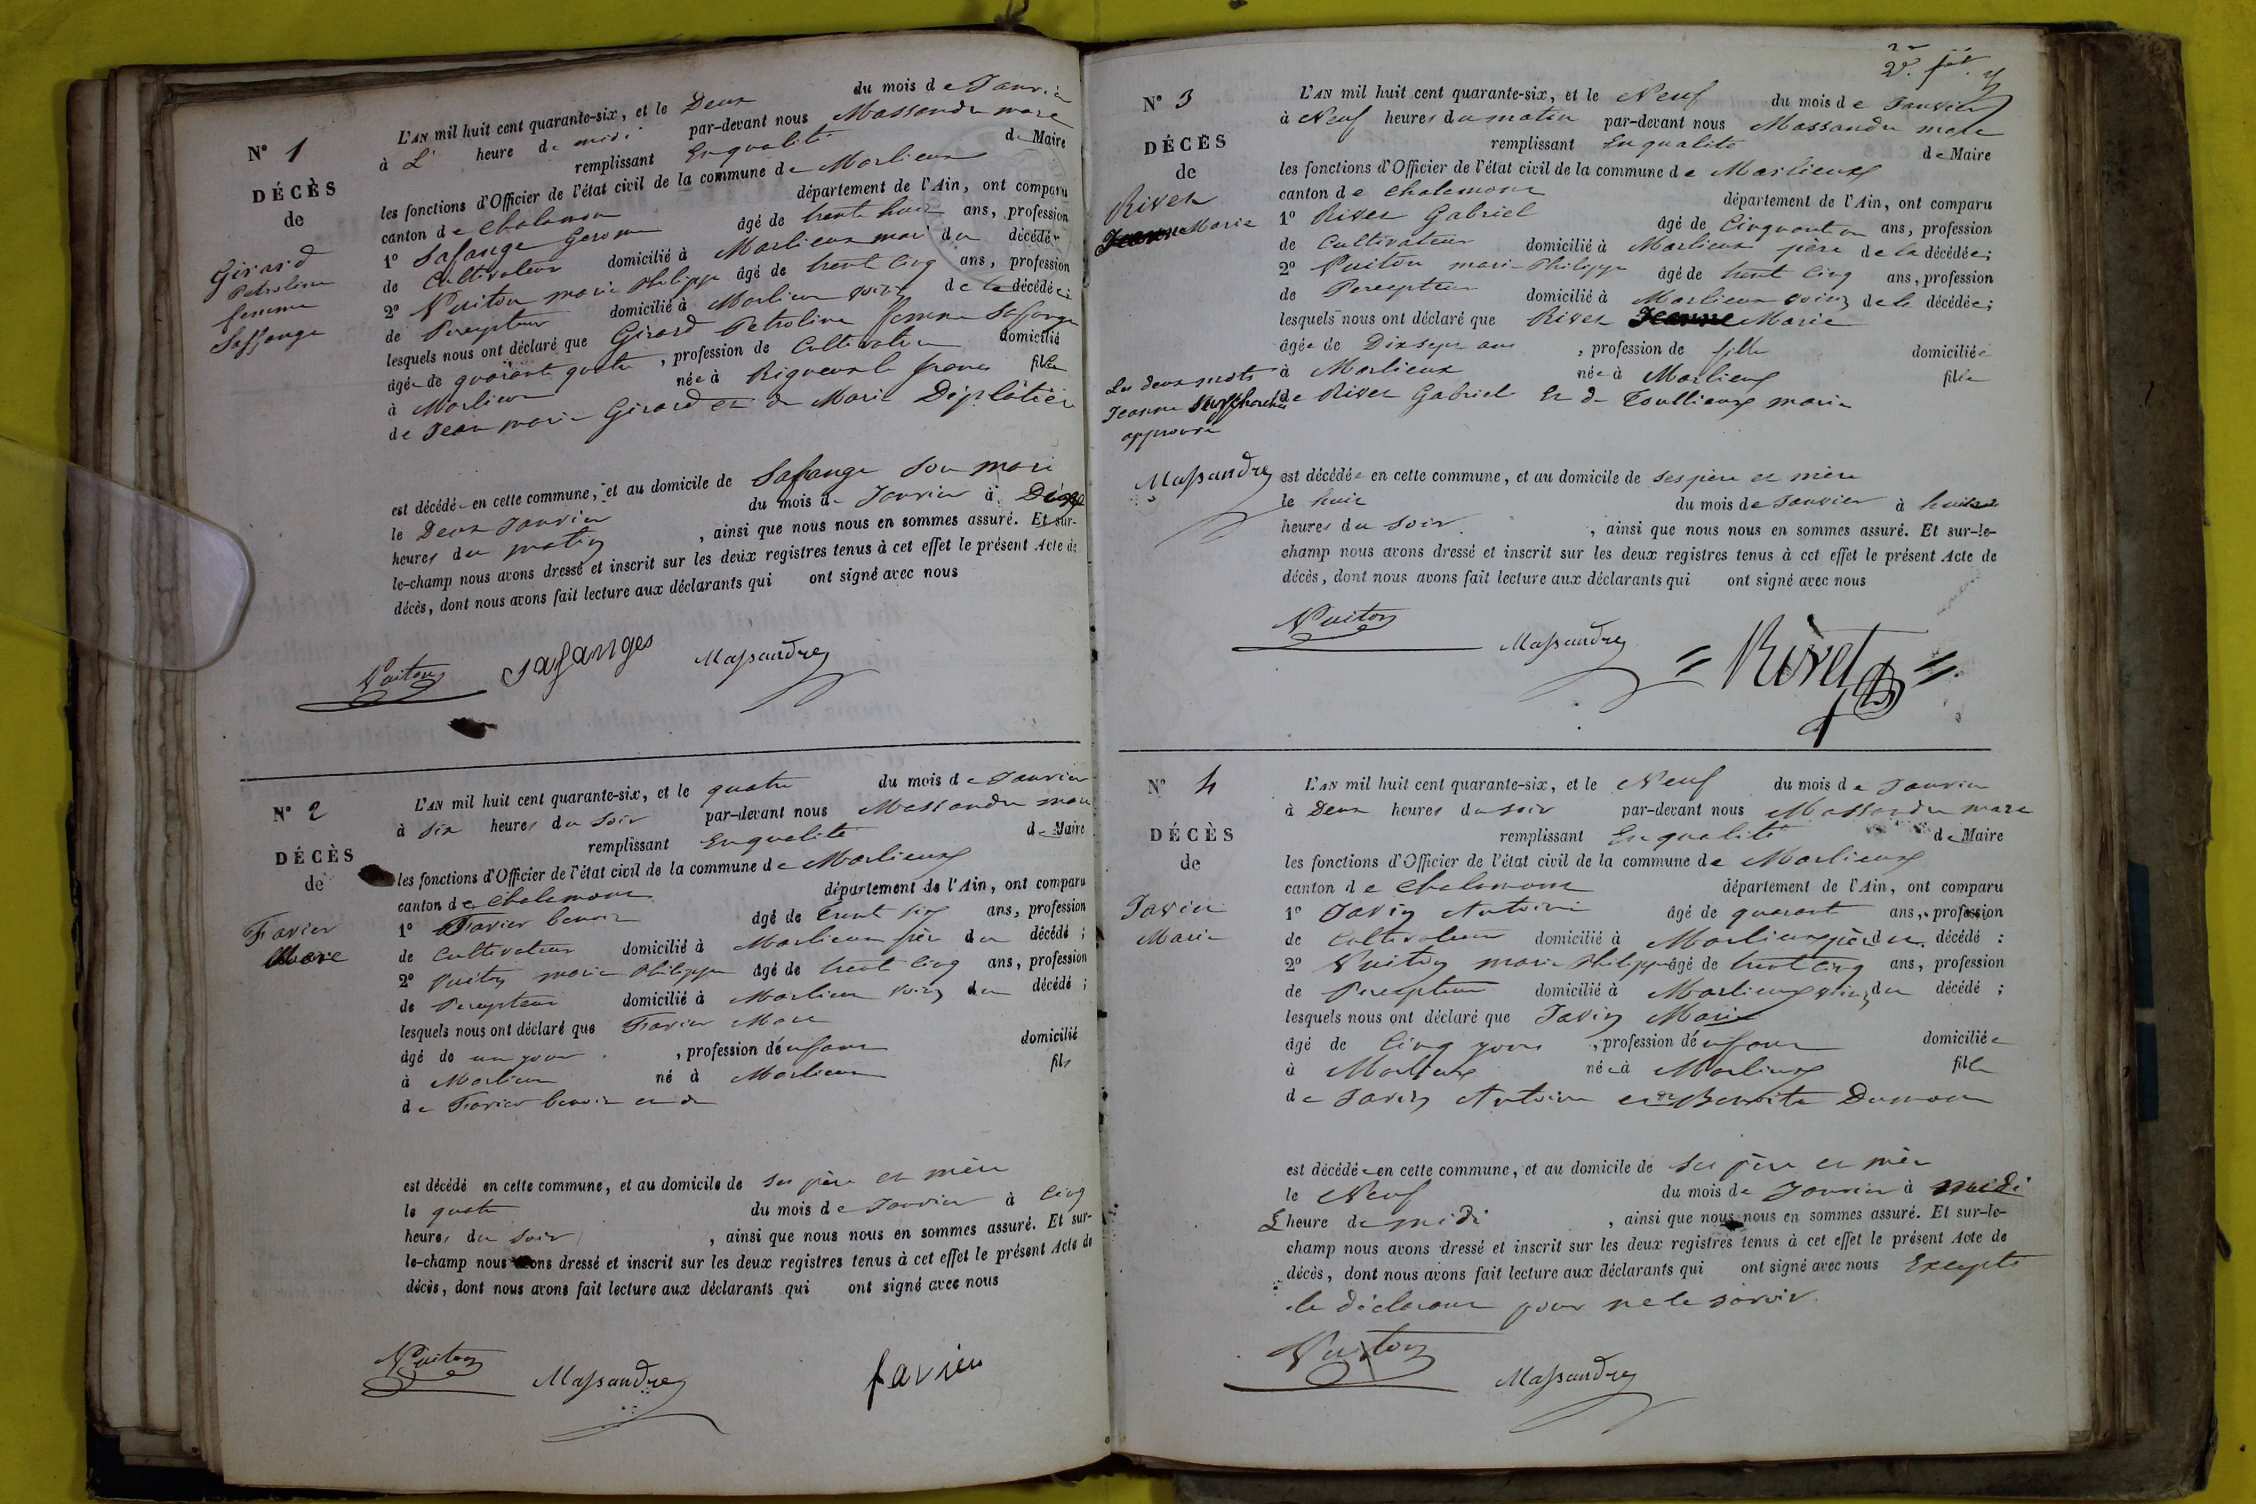 N° 1
DÉCÈS
de
Girard
Petroline
femme
Saffange
L'AN mil huit cent quarante-six, et le Deux du mois de Janvier
à L' heure de midi par-devant nous Massandre marc
remplissant En qualité de Maire
les fonctions d'Officier de l'état civil de la commune de Marlieux
canton de Chalamont département de l'Ain, ont comparu
1° Safange Gerome âgé de trente huit ans, profession
de Cultivateur domicilié à Marlieux mari du décédé
2° Vuiton marie Philippe âgé de trente cinq ans, profession
de Percepteur domicilié à Marlieux voisin de la décédée;
lesquels nous ont déclaré que Girard Petroline femme Safange
âgée de quarante quatre, profession de Cultivatrice domicilié
à Marlieux née à Rigneux le franc fille
de Jean marie Girard et de Marie Déplâtier
est décédée en cette commune, et au domicile de Safange son mari
le Deux Janvier du mois de Janvier à
heures du matin, ainsi que nous nous en sommes assuré. Et sur-
le-champ nous avons dressé et inscrit sur les deux registres tenus à cet effet le présent Acte de
décès, dont nous avons fait lecture aux déclarants qui ont signé avec nous
Vuiton Safanges Massandre
N° 2
DÉCÈS
de
Favier
Marc
L'AN mil huit cent quarante-six, et le quatre du mois de Janvier
à six heures du soir par-devant nous Massandre marc
remplissant En qualité de Maire
les fonctions d'Officier de l'état civil de la commune de Marlieux
canton de Chalamont département de l'Ain, ont comparu
1° Favier benoit âgé de trente six ans, profession
de Cultivateur domicilié à Marlieux père du décédé;
2° Vuiton marie Philippe âgé de trente cinq ans, profession
de Percepteur domicilié à Marlieux voisin du décédé;
lesquels nous ont déclaré que Favier Marc
âgé de un jour, profession d'enfant domicilié
à Marlieux né à Marlieux fils
de Favier benoit et de
est décédé en cette commune, et au domicile de ses père et mère
le quatre du mois de Janvier à cinq
heures du soir, ainsi que nous nous en sommes assuré. Et sur-
le-champ nous avons dressé et inscrit sur les deux registres tenus à cet effet le présent Acte de
décès, dont nous avons fait lecture aux déclarants qui ont signé avec nous
Vuiton Massandre favier
N° 3
DÉCÈS
de
Rivet
Jeanne Marie
Les deux mots
Jeanne
approuvé
Massandre
L'AN mil huit cent quarante-six, et le Neuf du mois de Janvier
à Neuf heures du matin par-devant nous Massandre marc
remplissant En qualité de Maire
les fonctions d'Officier de l'état civil de la commune de Marlieux
canton de Chalamont département de l'Ain, ont comparu
1° Rivet Gabriel âgé de Cinquante un ans, profession
de Cultivateur domicilié à Marlieux père de la décédée;
2° Vuiton marie Philippe âgé de trente Cinq ans, profession
de Percepteur domicilié à Marlieux voisin de la décédée;
lesquels nous ont déclaré que Rivet Jeanne Marie
âgée de Dix sept ans, profession de fille domiciliée
à Marlieux née à Marlieux fille
de Rivet Gabriel Et de Toullieux marie
est décédée en cette commune, et au domicile de ses père et mère
le huit du mois de Janvier à
heures du soir, ainsi que nous nous en sommes assuré. Et sur-le-
champ nous avons dressé et inscrit sur les deux registres tenus à cet effet le présent Acte de
décès, dont nous avons fait lecture aux déclarants qui ont signé avec nous
Vuiton Massandre = Rivet =
N° 4
DÉCÈS
de
Javin
Marie
L'AN mil huit cent quarante-six, et le Neuf du mois de Janvier
à Deux heures du soir par-devant nous Massandre marc
remplissant En qualité de Maire
les fonctions d'Officier de l'état civil de la commune de Marlieux
canton de Chalamont département de l'Ain, ont comparu
1° Javin Antoine âgé de quarante ans, profession
de Cultivateur domicilié à Marlieux père du décédé:
2° Vuiton marie Philippe âgé de trente cinq ans, profession
de Percepteur domicilié à Marlieux voisin du décédé;
lesquels nous ont déclaré que Javin Marie
âgé de Cinq jours, profession d'enfant domiciliée
à Marlieux née à Marlieux fille
de Javin Antoine et de Benoite Dumont
est décédée en cette commune, et au domicile de ses père et mère
le Neuf du mois de Janvier à midi
L heure de midi, ainsi que nous nous en sommes assuré. Et sur-le-
champ nous avons dressé et inscrit sur les deux registres tenus à cet effet le présent Acte de
décès, dont nous avons fait lecture aux déclarants qui ont signé avec nous Excepté
le déclarant pour ne le savoir.
Vuiton Massandre